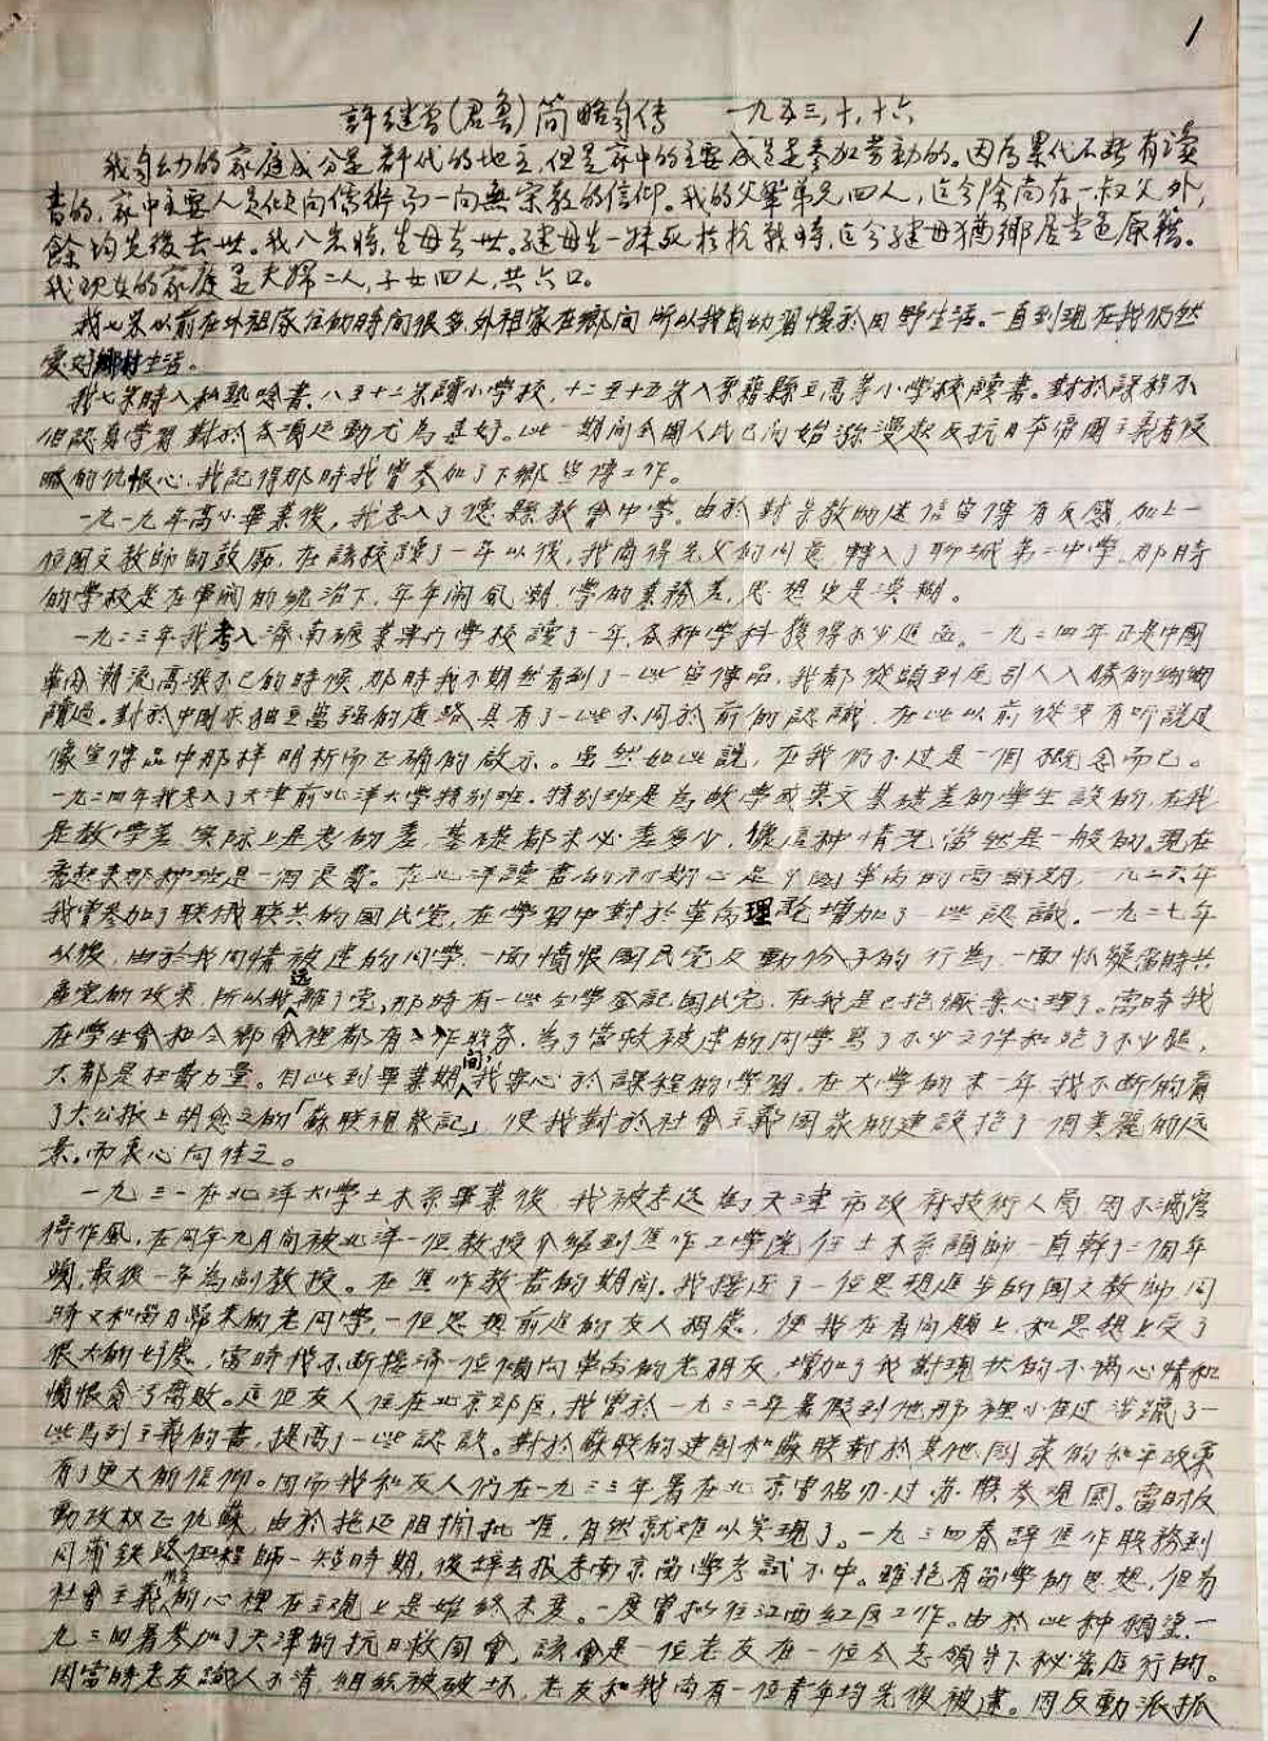 1
許継曾(君魯)简略自传 一九五三,十,十六
我自幼的家庭成分是群代的地主,但是家中的主要成员是参加劳動的。因為累代不断有读
書的,家中主要人员倾向儒術而一向無宗教的信仰。我的父輩弟兄四人,迄今除尚存一叔父外,
餘均先後去世。我八岁時,生母去世。继母生一妹死於抗戰時,迄今继母猶鄉居堂邑原籍。
我現在的家庭是夫婦二人,子女四人,共六口。
我七岁以前在外祖家住的時间很多,外祖家在鄉间所以我自幼習慣於田野生活。一直到現在我仍然
愛好鄉村生活。
我七岁時入私塾唸書,八至十二岁讀小學校,十二至十五岁入原籍縣立高等小學校讀書。對於課程不
但認真學習對於各項运動尤為喜好。此一期间全國人民已開始弥漫起反抗日本帝國主義者侵
略的仇恨心,我記得那時我曾参加了下鄉宣傳工作。
一九一九年高小畢業後,我考入了德縣教會中學。由於對宗教的迷信宣傳有反感,加上一
位國文教師的鼓勵,在該校讀了一年以後,我商得先父的同意,轉入了聊城第二中學。那時
的學校是在軍閥的統治下,年年闹風潮,學的業務差,思想也是漠糊。
一九二三年我考入濟南礦業專门學校讀了一年,各种學科獲得不少進益。一九二四年正是中國
革命潮流高漲不已的時候,那時我不期然看到了一些宣傳品,我都從頭到尾引人入勝的細細
讀過。對於中國求独立富强的道路具有了一些不同於前的認識,在此以前從没有听説过
像宣傳品中那样明晰而正确的啟示。虽然如此說,在我仍不过是一個概念而已。
一九二四年我考入了天津前北洋大學特别班。特别班是為數學或英文基礎差的學生設的,在我
是數學差,实际上是考的差,基礎都未必差多少,像這种情况當然是一般的。現在
看起来那种班是一個浪費。在北洋讀書的初期正是中國革命的高潮期,一九二六年
我曾参加了联俄联共的國民党,在學習中對於革命理論增加了一些認識。一九二七年
以後,由於我同情被逮的同學,一面憤恨國民党反動份子的行為,一面怀疑當時共
產党的政策,所以我远離了党,那時有一些同學登記國民党,在我是已抱厭棄心理了。當時我
在學生會和同鄉會裡都有工作職务,為了营救被逮的同學寫了不少文件和跑了不少腿,
大都是枉費力量。自此到畢業期间,我專心於課程的學習。在大學的末一年,我不断的看
了大公报上胡愈之的「蘇联視察記」使我對於社會主義國家的建設抱了一個美麗的远
景,而衷心向往之。
一九三一在北洋大學土木系畢業後,我被考送為天津市政府技術人员,因不滿官
僚作風,在同年九月间被北洋一位教授介紹到焦作工學院任土木系講師一直幹了二個年
頭,最後一年為副教授。在焦作教書的期间,我接近了一位思想進步的國文教師同
時又和留日歸来的老同學,一位思想前進的友人相處,使我在看问題上,和思想上受了
很大的好處,當時我不断接濟一位傾向革命的老朋友,增加了我對現状的不滿心情和
憤恨貪污腐敗。這位友人住在北京郊区,我曾於一九三二年暑假到他那裡小住过涉躐了一
些馬列主義的書,提高了一些認識。對於蘇联的建國和蘇联對於其他國家的和平政策
有了更大的信仰。因而我和友人们在一九三三年暑在北京曾倡办过苏联参观團。當时反
動政权正仇蘇,由於拖延阻撓批准,自然就难以实現了。一九三四春辞焦作職務到
同蒲鉄路任工程師一短時期,後辞去报考南京留學考試不中。雖抱有留學的思想,但为
社會主義的心裡在主观上是始終未变。一度曾拟往江西红区工作。由於此种願望,一
九三四暑参加了天津的抗日救國會,該會是一位老友在一位同志領导下秘密進行的。
因當時老友識人不清,組織被破坏,老友和我尚有一位青年均先後被逮。因反動派抓